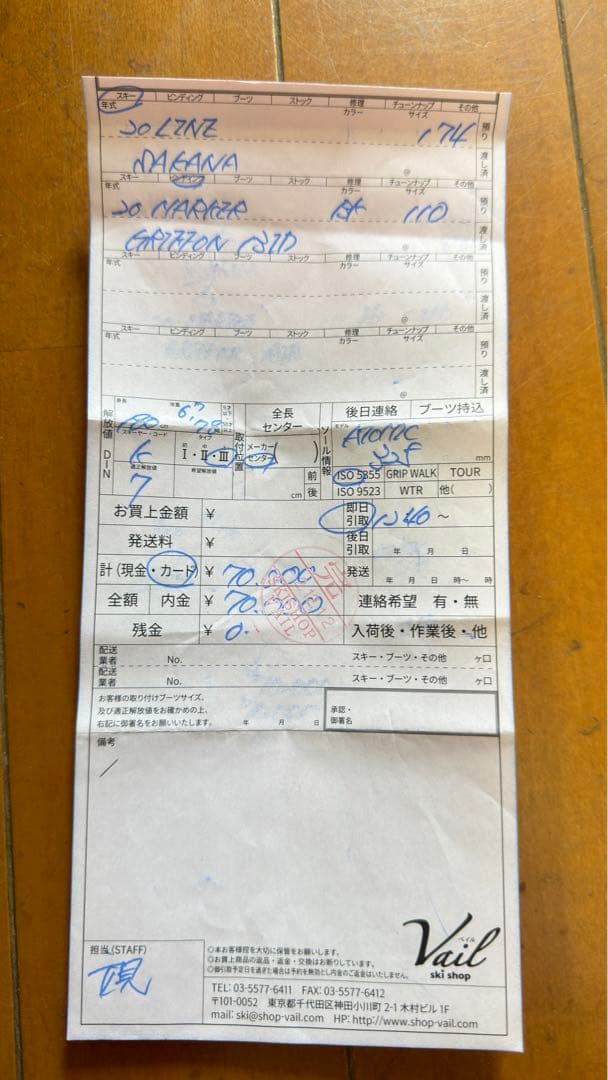 スキー ビンディング ブーツ ストック 修理 チューンナップ その他
年式 カラー サイズ
20 LINE 174 預り
SAKANA @ 渡し済
スキー ビンディング ブーツ ストック 修理 チューンナップ その他
年式 カラー サイズ
20 MARKER BK 110 預り
GRIFFON 13ID @ 渡し済
スキー ビンディング ブーツ ストック 修理 チューンナップ その他
年式 カラー サイズ 預り
@ 渡し済
スキー ビンディング ブーツ ストック 修理 チューンナップ その他
年式 カラー サイズ 預り
@ 渡し済
解放値 DIN
身長 体重
スキーヤー・コード タイプ
K Ⅰ・Ⅱ・Ⅲ
適正解放値 希望解放値
7
取付位置
全長
センター
メーカー
センター ( )
cm
ソール情報
後日連絡 ブーツ持込
モデル ATOMIC
mm
前 ISO 5355 GRIP WALK TOUR
後 ISO 9523 WTR 他( )
お買上金額 ¥ 即日引取 12:40 ~
発送料 ¥ 後日引取 年 月 日
計(現金・カード) ¥ 70,000 発送 年 月 日 時〜 時
全額 内金 ¥ 70,000 連絡希望 有・無
残金 ¥ 0- 入荷後・作業後・他
配送業者 No. スキー・ブーツ・その他 ヶ口
配送業者 No. スキー・ブーツ・その他 ヶ口
お客様の取り付けブーツサイズ、
及び適正解放値をお確かめの上、
右記に御署名をお願いいたします。 年 月 日
承認・
御署名
備考
担当(STAFF)
◎本お客様控を大切に保管をお願いします。
◎お買上商品の返品・返金・交換はお断りしています。
◎御引取予定日を過ぎた場合は予約を無効とし内金のご返金はいたしません。
Vail
ベイル
ski shop
TEL: 03-5577-6411 FAX: 03-5577-6412
〒101-0052 東京都千代田区神田小川町 2-1 木村ビル 1F
mail: ski@shop-vail.com HP: http://www.shop-vail.com